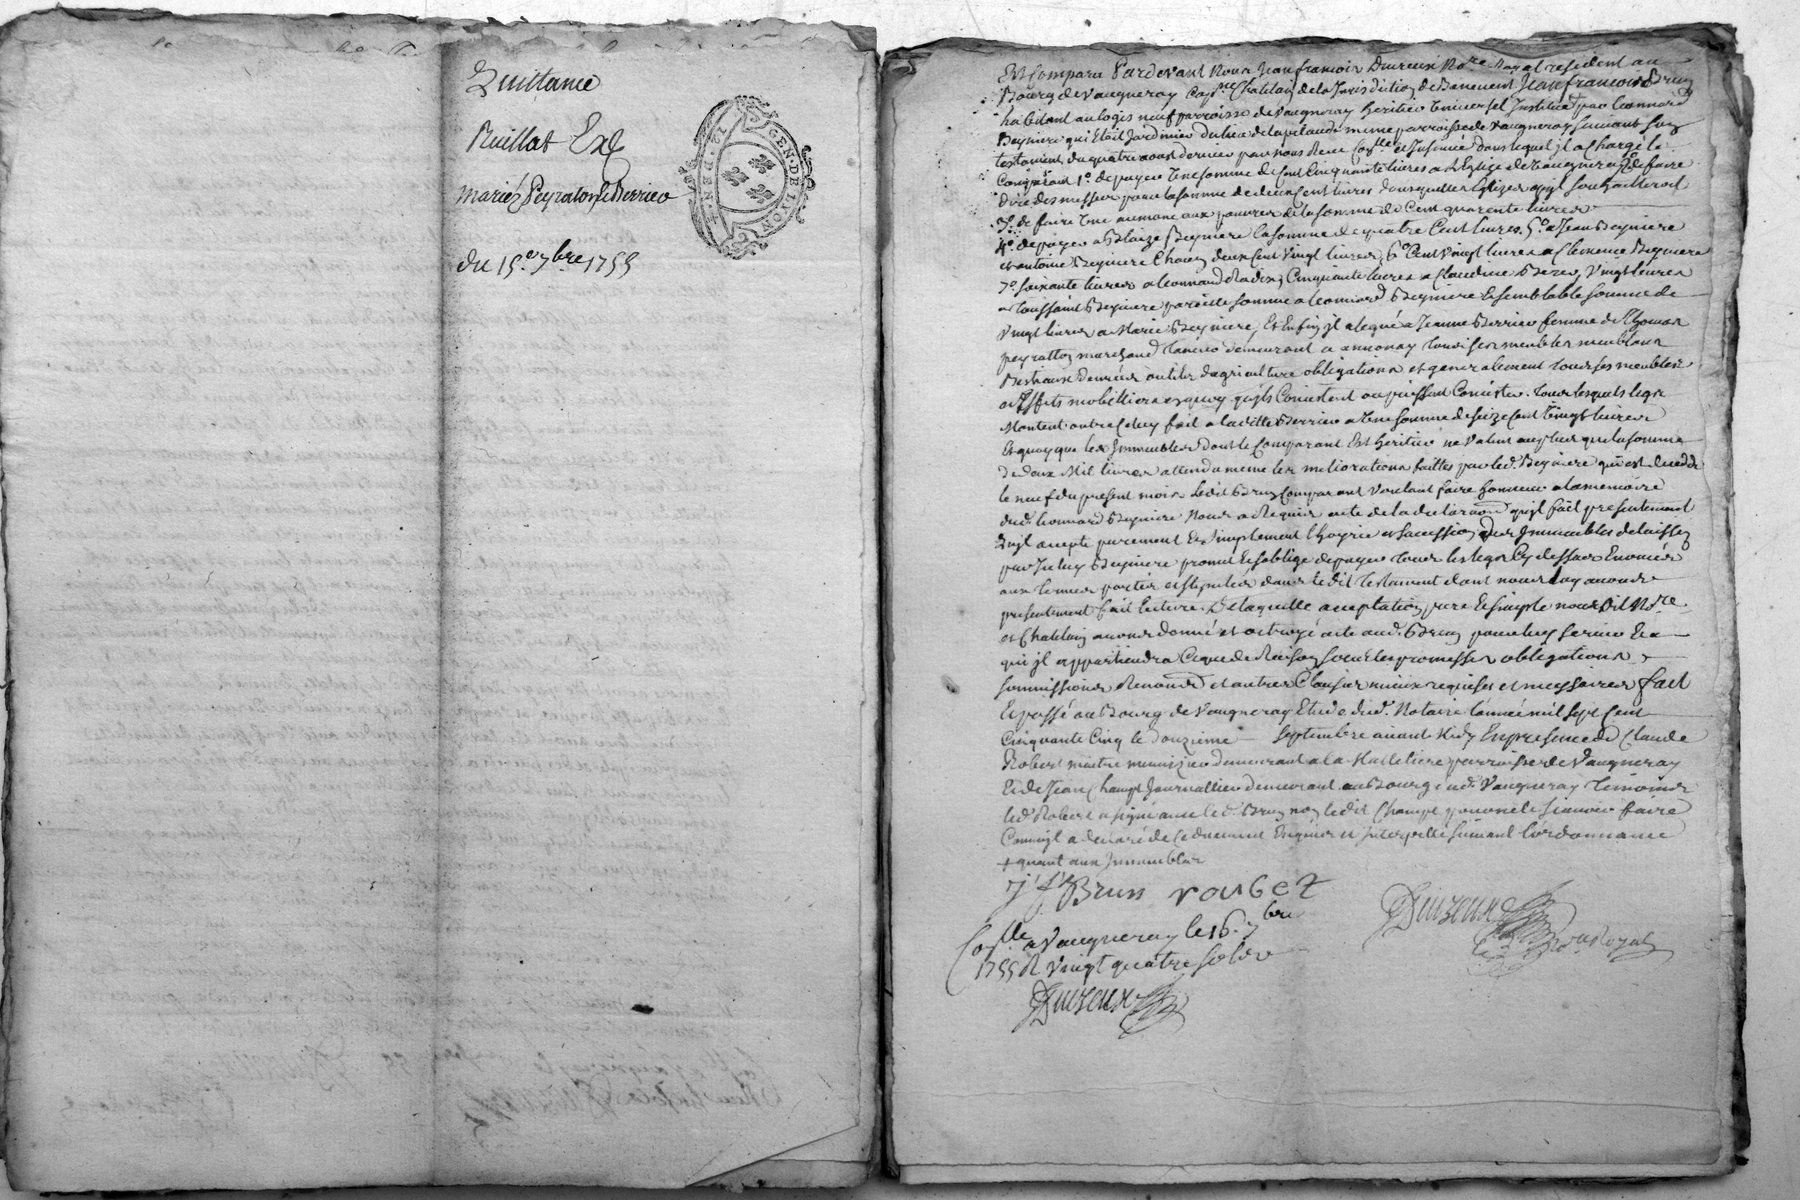 Quittance
Ruillat Ex
mariéz Peyraton & Berrieo
du 15e 7bre 1755
GEN. DE LYON
Est comparu Pardevant Nous Jean francois Duvreux Nore Royal resident au
Bourg de Vaugneray Capne Chatelain de la Jurisdiction de Benevent Jean francois Brun
habitant au logis neuf parroisse de Vaugneray heritier universel Institué par Leonnard
Beyniere qui Etoit Jardinier du lieu de la pelaude meme parroisse de Vaugneray suivant son
testament du quatre aoust dernier par nous Receu Conlle et Insinué dans lequel il a Chargé le
Comparant 1o. de payer Une somme de Cent Cinquante livres a L'Eglise de Vaugneray 2o. de faire
dire des messes pour la somme de deux Cent livres dans quelles Eglises quil souhaitteroit
3o. de faire Une aumone aux pauvres de la somme de Cent quarente livres
4o. de payer a Blaize Beyniere la somme de quatre Cent livres, 5o. a Jean Beyniere
et antoine Beyniere Chacun deux Cent Vingt livres, 6o Cent Vingt livres a Clemence Beyniere
7o. soixante livres a Leonnard Radix, Cinquante livres a Claudine Bezer, Vingt livres
a toussaint Beyniere pareille somme a Leonnard Beyniere Et semblable somme de
Vingt livres a Marie Beyniere, Et Enfin il a legué a Jeanne Berrier femme de Thomas
peyratton marchand tanneur demeurant a annonay tous ses meubles meublans
Bestiaux denrées outils d'agriculture obligations et generalement tous ses meubles
et Effets mobilliers en quoy quils Consistent ou puissent Consister. tous lesquels legs
Montent outre Celuy fait a la ditte Berrier a Une somme de seize Cent Vingt livres
Et quoy que les Immeubles dont le Comparant Est heritier ne Valent au plus que la somme
de deux Mil livres attendu meme les meliorations faittes par led. Beyniere qui est decedé
le neuf du present mois Ledit Brun Comparant Voulant faire honneur a la memoire
dud. Leonnard Beyniere Nous a Requis acte de la declaraõn quil fait presentement
Quil accepte purement Et simplement L'hoyrie et succession des Immeubles delaissez
par Iceluy Beyniere promet Et soblige de payer tous les legs Cy dessus Enoncés
aux termes portés et stipulés dans le dit testament dont nous luy avons
presentement fait lecture. De laquelle acceptation pure Et simple nous dit Nore
et Chatelain avons donné et octroyé acte aud. Brun pour luy servir Et a
qui il appartiendra Ce que de Raison sous les promesses obligations
soumissions Renonces et autres Clauses mieux requises et necessaires fait
Et passé au Bourg de Vaugneray Etude dud. Notaire l'année mil sept Cent
Cinquante Cinq le douzieme septembre avant Midy En presence de Claude
Robert maitre menuizier demeurant a la Malletiere parroisse de Vaugneray
Et de Jean Champt Journallier demeurant au Bourg dud. Vaugneray temoins
led. Robert a signé avec led. Brun non ledit Champt pour ne le scavoir faire
Comme il a declaré de Ce duement Enquis et Interpellé suivant l'ordonnance
+ quant aux Immeubles
J. f. Brun roubet
Conlle a Vaugneray le 16. 7bre
1755 R Vingt quatre sols
Duvreux
Duvreux
Nore Royal